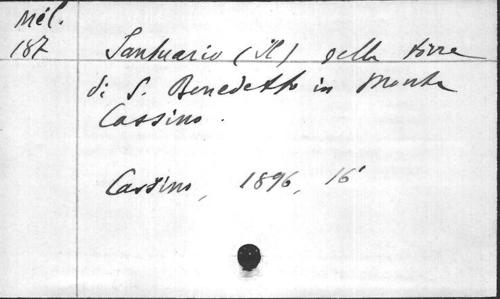 Mél.
187
Santuario (Il) della torre
di S. Benedetto in Monte
Cassino.
Cassino, 1896, 16°